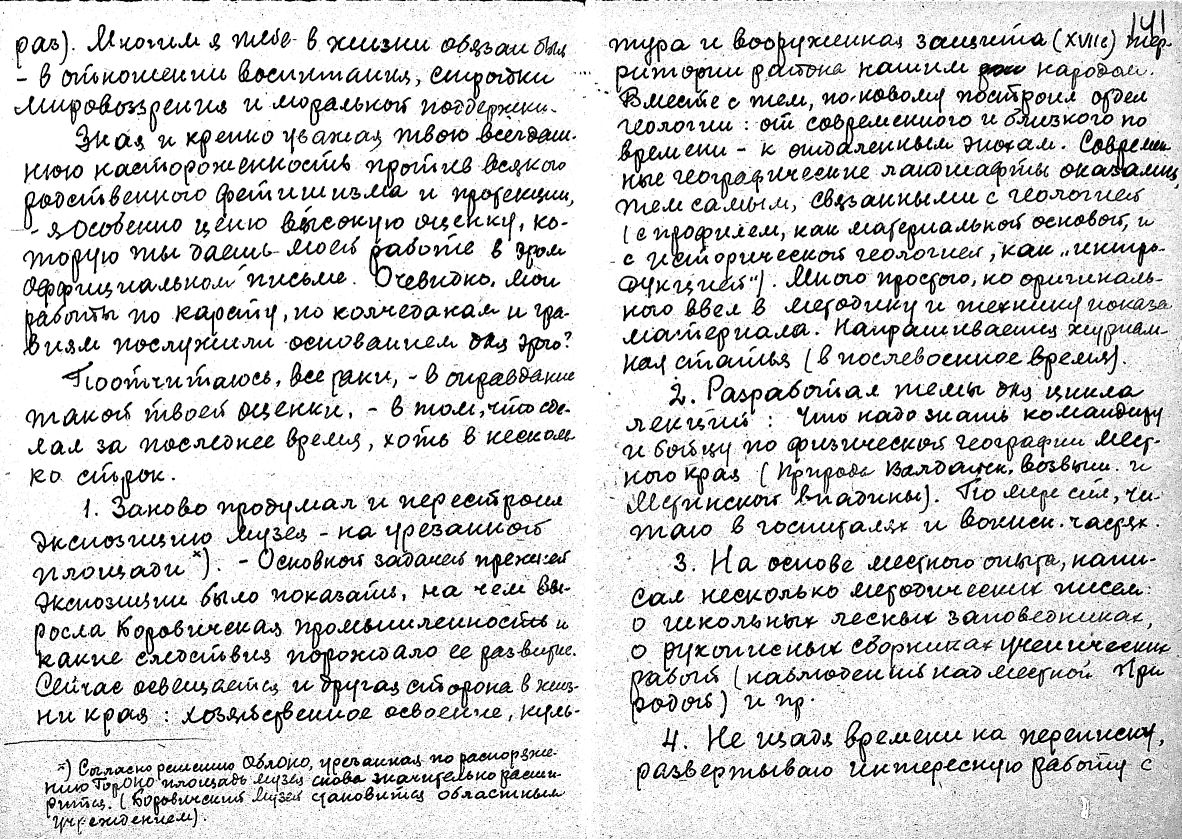 раз). Многим я тебе в жизни обязан был
- в отношении воспитания, стройки
мировоззрения и моральной поддержки.
Зная и крепко уважая твою всегдаш-
нюю настороженность против всякого
родственного фетишизма и протекции,
- я особенно ценю высокую оценку, ко-
торую ты даешь моей работе в этом
оффициальном письме. Очевидно, мои
работы по карсту, по колчеданам и гра-
виям послужили основанием для этого?
Поотчитаюсь, все таки, - в оправдание
такой твоей оценки, - в том, что сде-
лал за последнее время, хоть в несколь
ко строк.
1. Заново продумал и перестроил
экспозицию музея - на урезанной
площади *). - Основной задачей прежней
экспозиции было показать, на чем вы-
росла Боровичская промышленность и
какие следствия порождало ее развитие.
Сейчас освещается и другая сторона в жиз-
ни края: хозяйственное освоение, куль-
*) Согласно решению ОблОНО, урезанная по распоряже-
нию ГорОНО площадь музея снова значительно расши-
рится. (Боровичский музей становится областным
учреждением).
141
тура и вооруженная защита (XVIIв) тер-
ритории района нашим народом.
Вместе с тем, по-новому построил отдел
геологии: от современного и близкого по
времени - к отдаленным эпохам. Современ
ные географические ландшафты оказались,
тем самым, связанными с геологией
(с профилем, как материальной основой, и
с исторической геологией, как "интро-
дукцией"). Много простого, но оригиналь-
ного ввел в методику и технику показа
материала. Напрашивается журналь-
ная статья (в послевоенное время).
2. Разработал темы для цикла
лекций: Что надо знать командиру
и бойцу по физической географии мест-
ного края (Природа Валдайск. возвыш. и
Мстинской впадины). По мере сил, чи-
таю в госпиталях и воинск. частях.
3. На основе местного опыта, напи-
сал несколько методических писем:
о школьных лесных заповедниках,
о рукописных сборниках ученических
работ (наблюдений над местной При
родой) и пр.
4. Не щадя времени на переписку,
развертываю интересную работу с